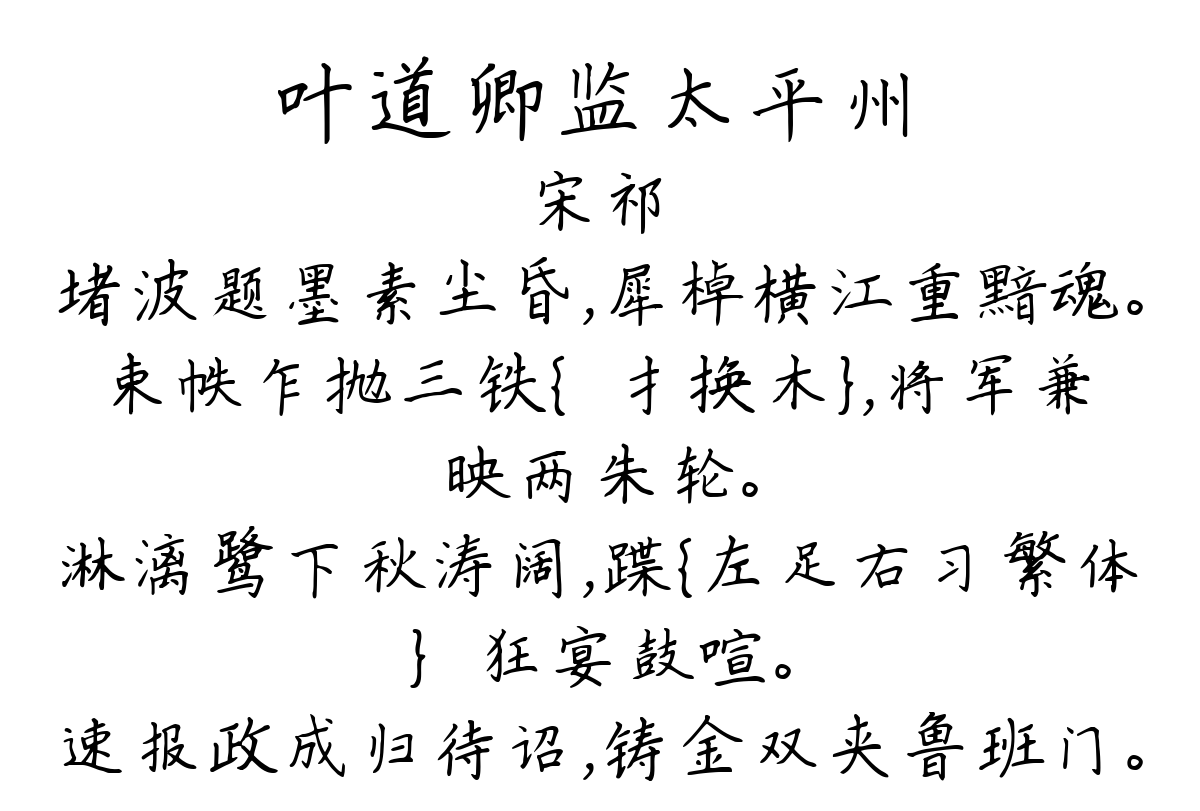 叶道卿监太平州
宋祁
堵波题墨素尘昏,犀棹横江重黯魂。
束帙乍抛三铁{ 扌换木},将军兼
映两朱轮。
淋漓鹭下秋涛阔,蹀{左足右习繁体
} 狂宴鼓喧。
速报政成归待诏,铸金双夹鲁班门。